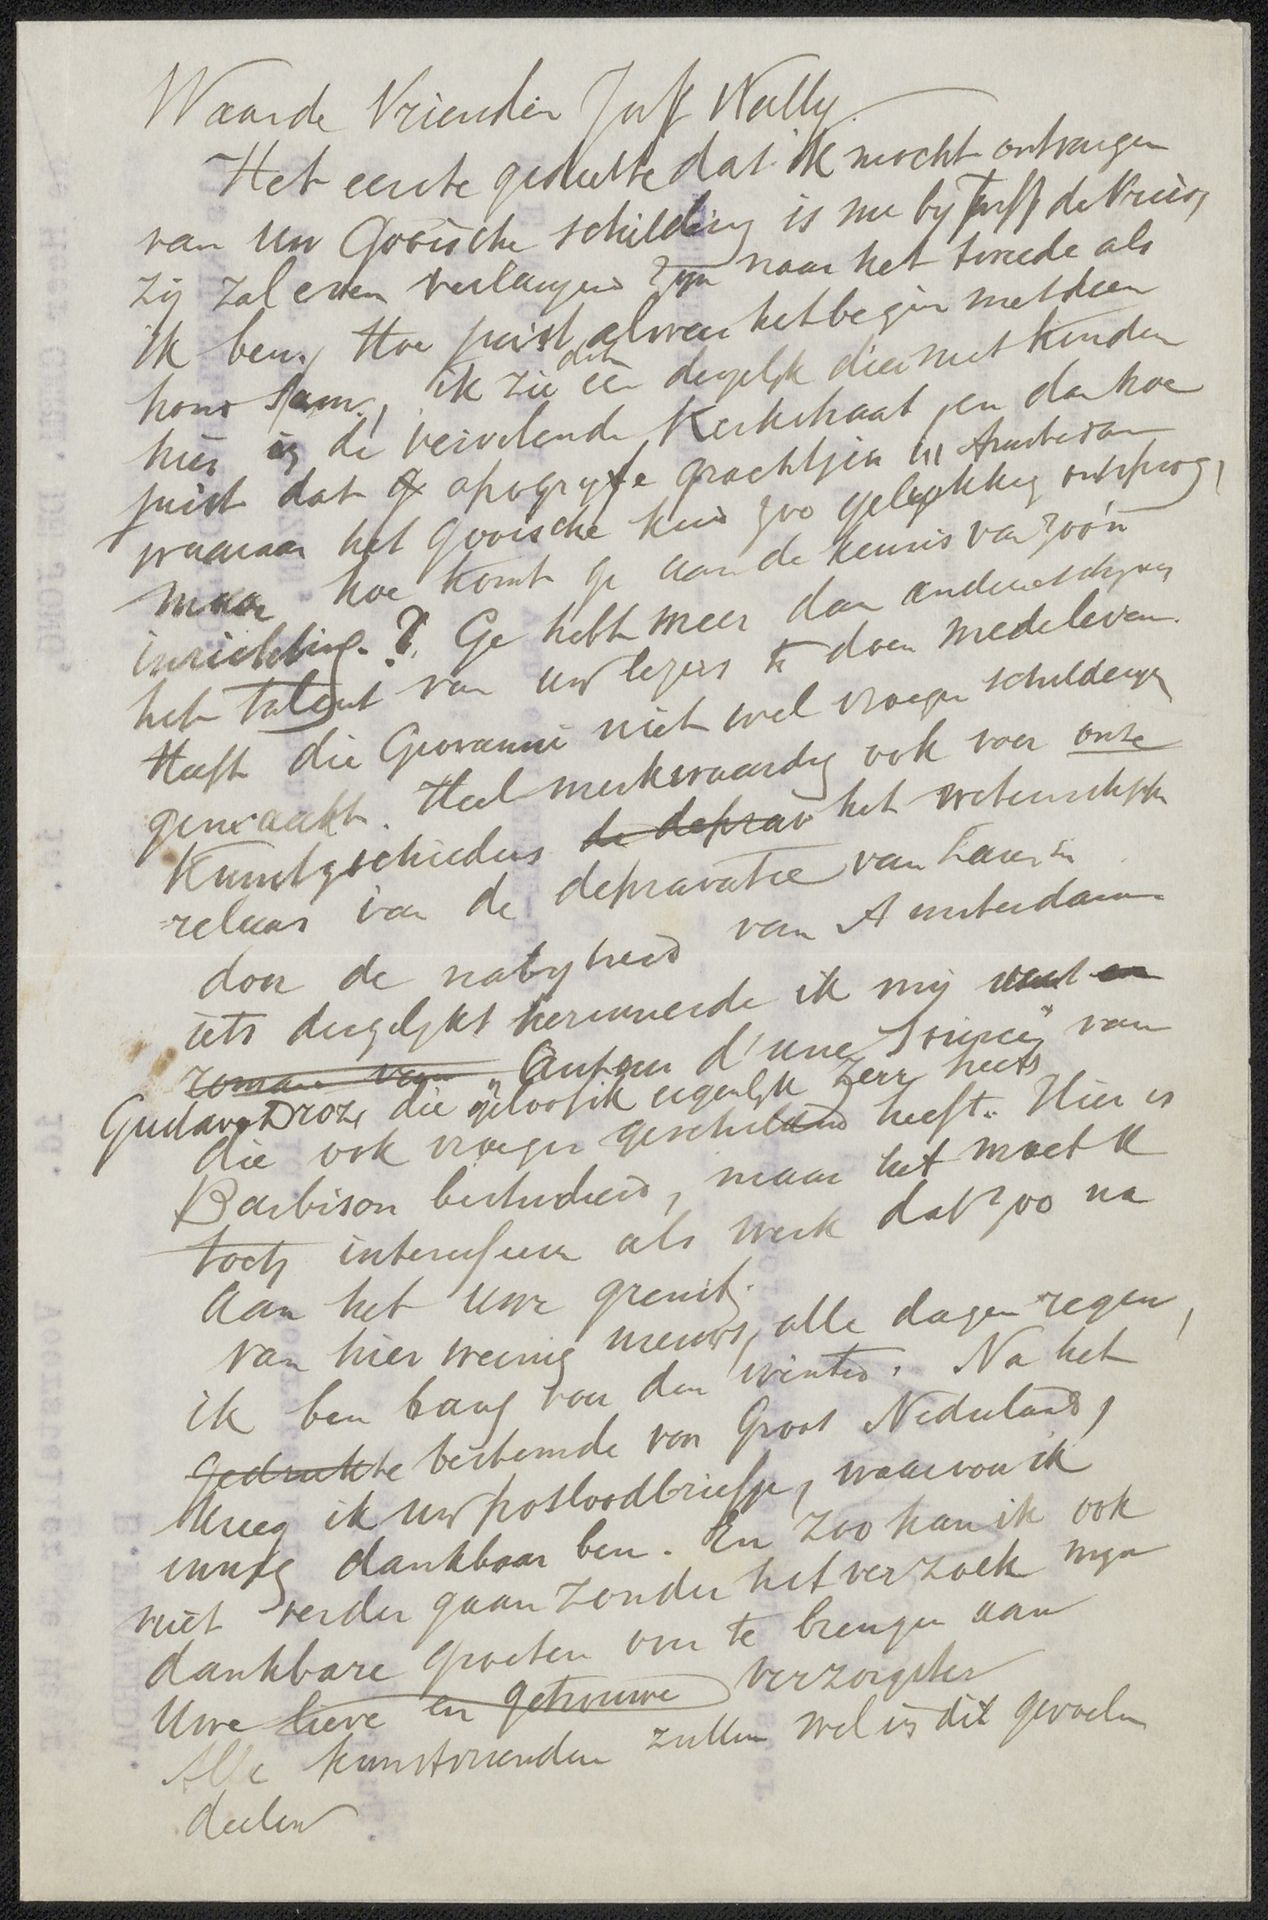 Waarde Vriendin Juff Nelly.
Het eerste gedeelte dat ik mocht ontvangen
van uw Gooische schildering is nu by Juff de Vries,
zij zal even verlangend zyn naar het tweede als
ik ben. Hoe juist alweer het begin met dien
hond Sam, ik zie dit een degelyk dier met kinden
hier in de vervelende Kerkstraat, en dan hoe
juist dat apogryfe grachtjen in Amsterdam
waaraan het Gooische kind zoo gelukkig ontsproog,
maar hoe komt ge aan de kennis van zoo'n
inrichting.? Ge hebt meer dan andere schryvers
het talent van uw lezers te doen medeleven.
Heeft die Giovanni niet wel vroeger schilderijen
gemaakt. Heel merkwaardig ook voor onze
Kunstgeschiedenis de deprav het wetenschappelijk
relaas van de depravatie van Laaren
door de nabyheid van Amsterdam
iets dergelykt herinnerde ik mij
roman van "Autour d'une Source" van
Gustave Droz, die geloof ik eigenlyk Zerr heets
die ook vroeger geschilderd heeft. Hier is
Barbison bestudeerd, maar het moet U
toch interesseren als werk dat zoo na
aan het Uwe grenst.
van hier weinig nieuws, alle dagen regen,
ik ben bang voor den winter. Na het
gedrukte bestemde van Groot Nederland,
kreeg ik uw potloodbriefje, waarvoor ik
innig dankbaar ben. En zoo kan ik ook
niet verder gaan zonder het verzoek myn
dankbare groeten over te brengen aan
Uwe lieve en getrouwe verzorgster
Alle kunstvrienden zullen wel in dit gevoelen
deelen